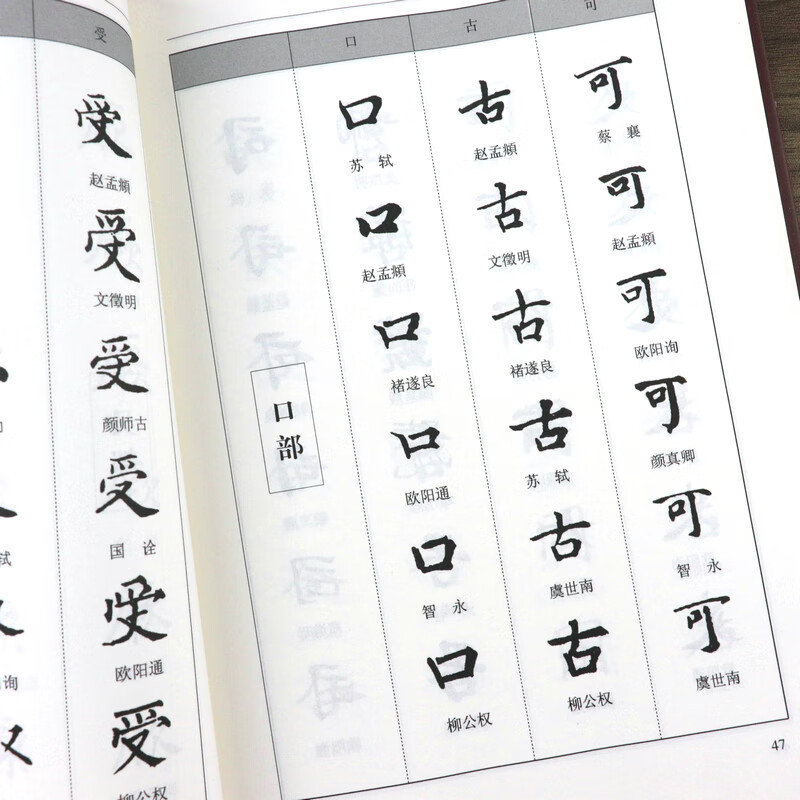 受
受
赵孟頫
受
文徵明
受
颜师古
受
国诠
受
欧阳通
受
柳公权
口 古 可
口部
口
苏轼
口
赵孟頫
口
褚遂良
口
欧阳通
口
智永
口
柳公权
古
赵孟頫
古
文徵明
古
褚遂良
古
苏轼
古
虞世南
古
柳公权
可
蔡襄
可
赵孟頫
可
欧阳询
可
颜真卿
可
智永
可
虞世南
47